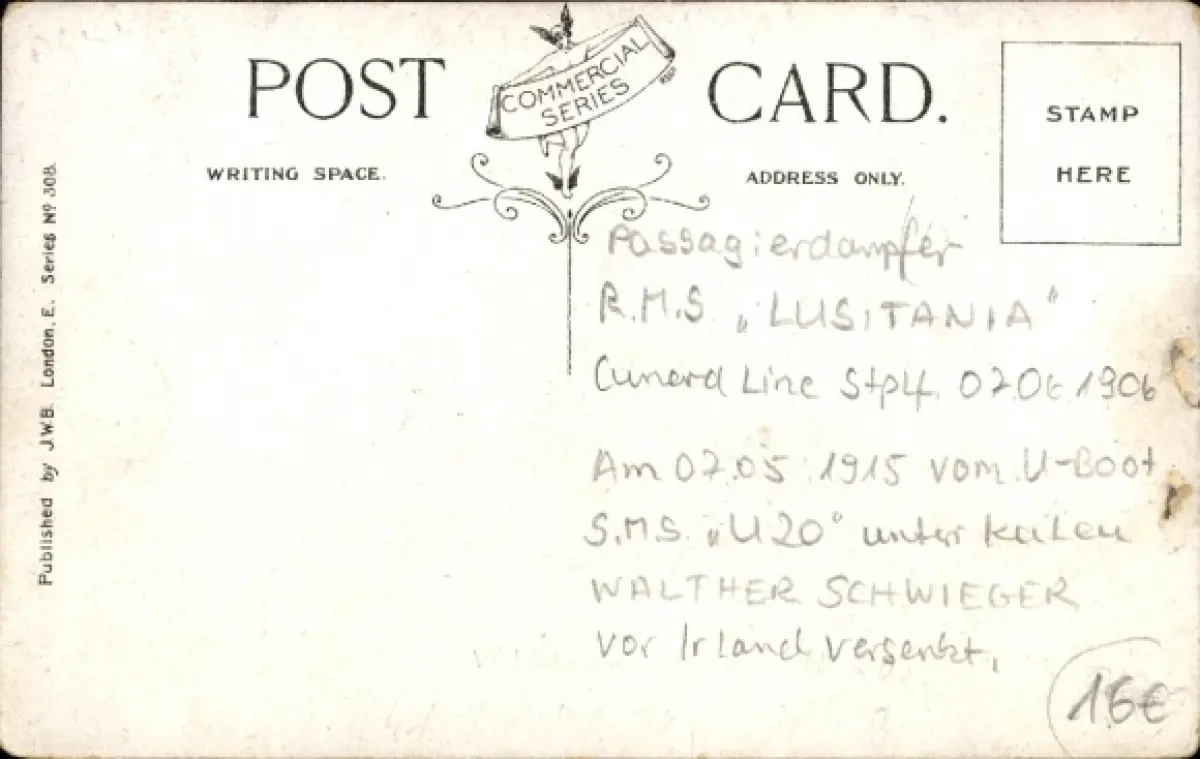 POST CARD.
COMMERCIAL
SERIES
STAMP
HERE
WRITING SPACE.
ADDRESS ONLY.
Published by J.W.B. London, E. Series Nº 308.
Passagierdampfer
R.M.S „LUSITANIA"
Cunard Line Stplf. 07.06.1906
Am 07.05.1915 vom U-Boot
S.M.S. „U20" unter
WALTHER SCHWIEGER
vor Irland versenkt.
16€